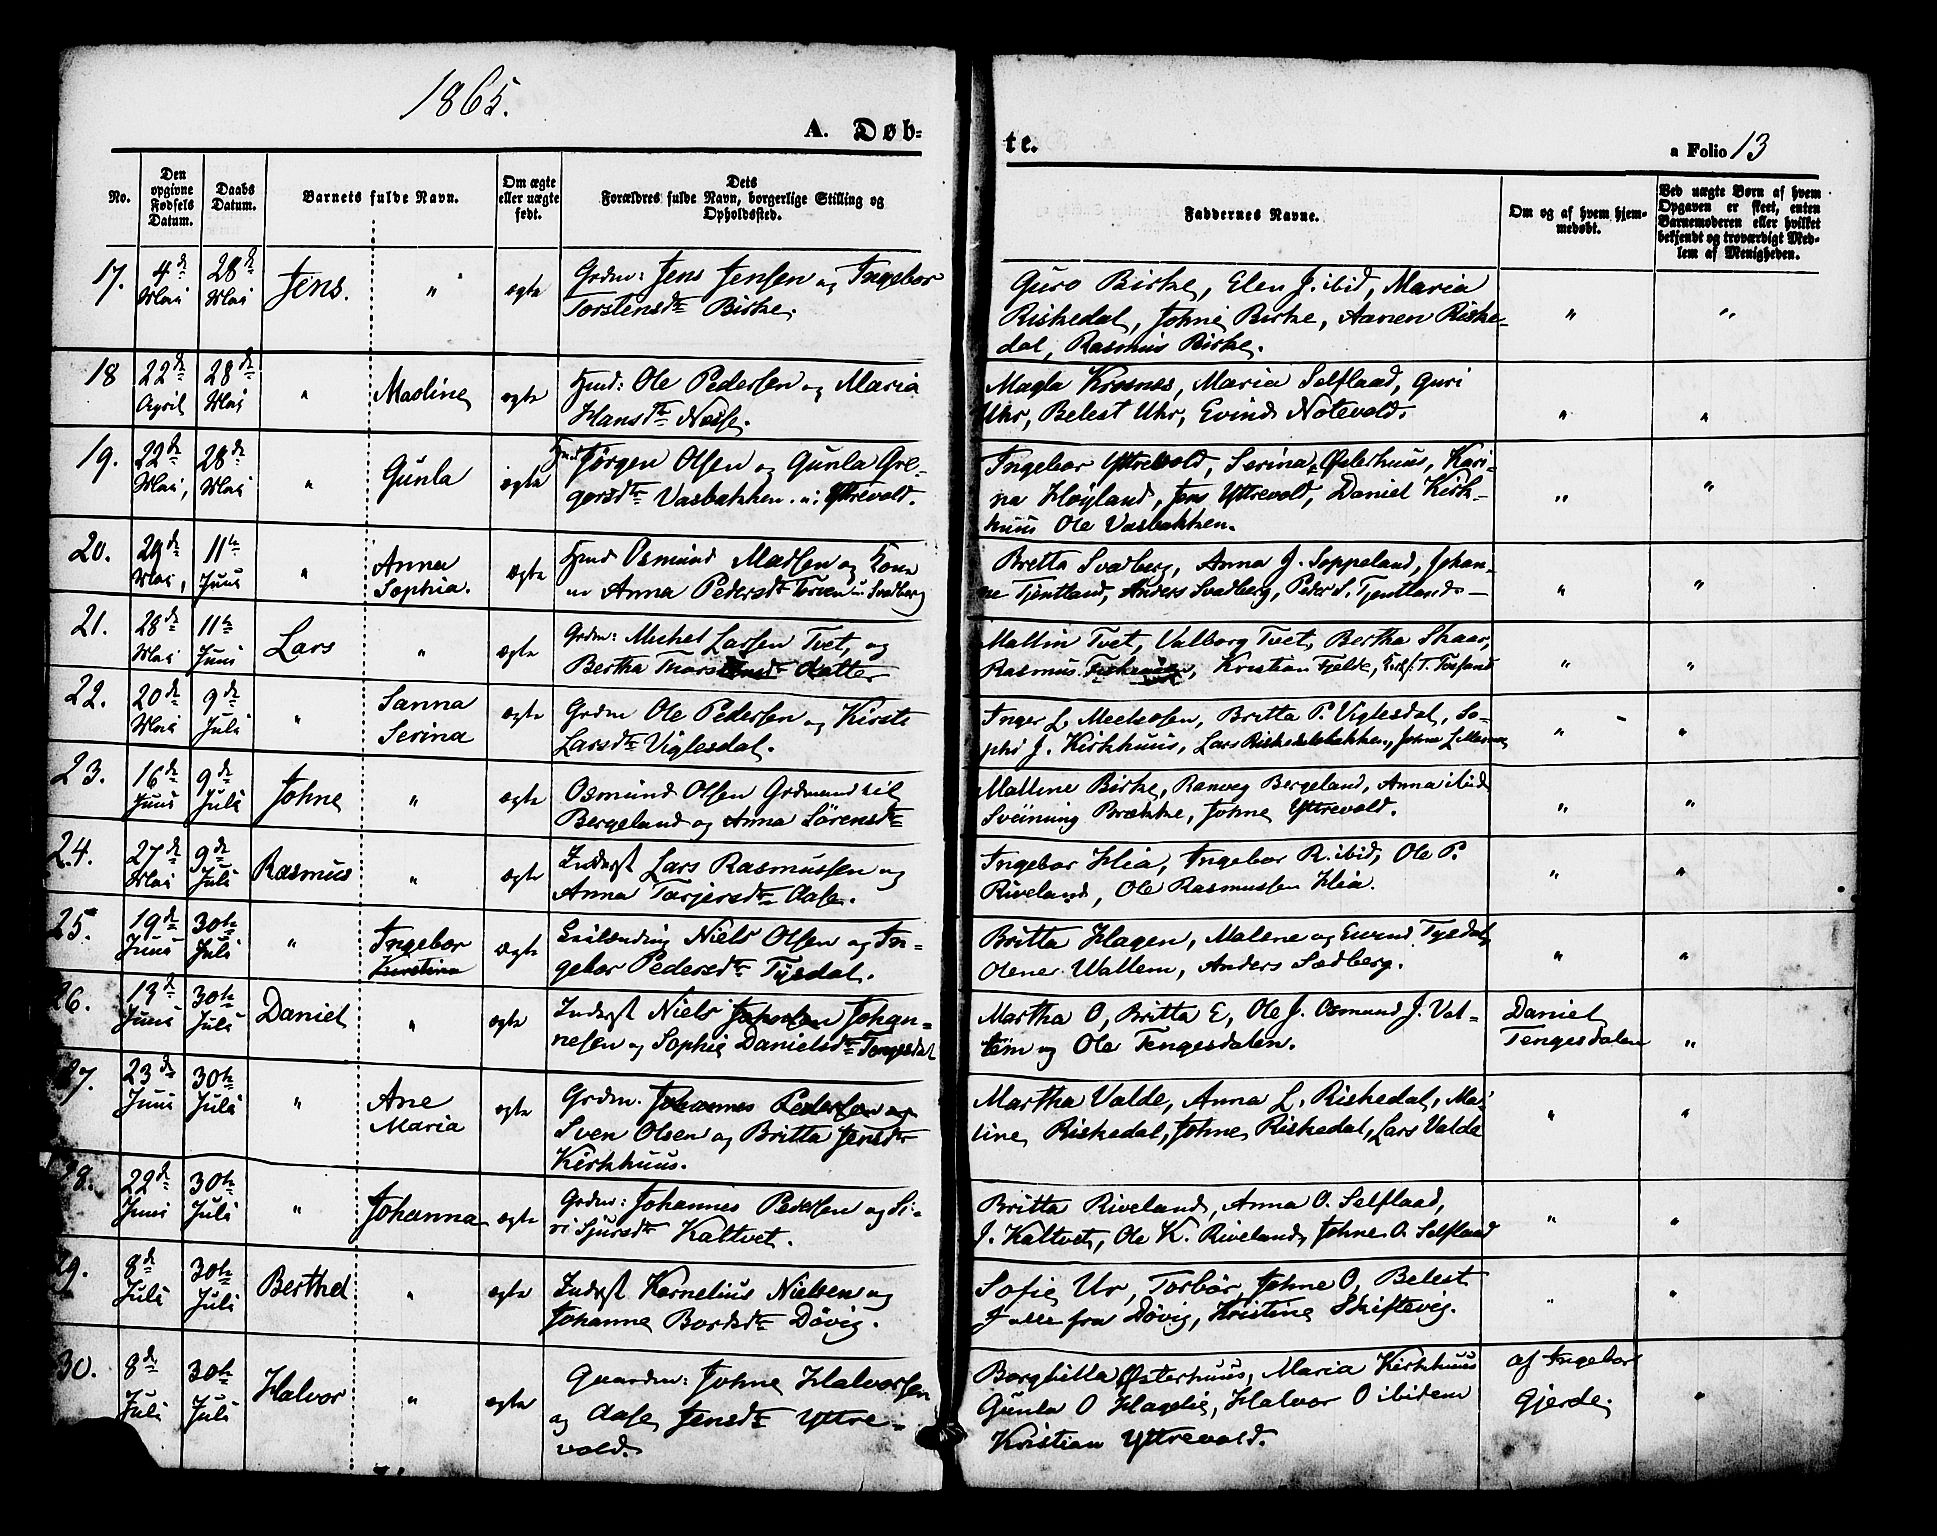 1865.
A. Døb-
te.
a Folio 13
No.
Den opgivne Fødsels Datum.
Daabs Datum.
Barnets fulde Navn.
Om ægte eller uægte født.
Dets Forældres fulde Navn, borgerlige Stilling og Opholdssted.
Faddernes Navne.
Om og af hvem hjemmedøbt.
Ved uægte Børn af hvem Opgaven er skeet, enten Barnemoderen eller hvilket bekjendt og troværdigt Medlem af Menigheden.
17. 4de Mai 28de Mai Jens. " ægte
Grdm: Jens Jensen og Ingebor
Torstensdtr Birke.
Guro Birke, Elen J. ibid, Maria
Riskedal, Johne Birke, Aanen Riske-
dal, Rasmus Birke. " "
18 22de April 28de Mai " Maoline ægte
Hmd: Ole Pedersen og Maria
Hansdtr Nesse.
Magla Krosnes, Maria Selflaad, Guri
Uhr, Belest Uhr, Evind Notevold. " "
19. 22de Mai, 28de Mai " Gunla ægte
Jørgen Olsen og Gunla Gre-
gersdtr Vasbakken. i Yttrevold.
Ingebor Yttrevold, Serina Østerhuus, Kari-
na Høyland, Jens Yttrevold, Daniel Kirk-
huus Ole Vasbakken. " "
20. 29de Mai, 11te Juni " Anna
Sophia. ægte
Hmd Osmund Madsen og Kone
Anna Pedersdtr Svadberg
Britta Svadberg, Anna J. Soppeland, Johan-
ne Tjentland, Anders Svadberg, Peder S. Tjentland - " "
21. 28de Mai 11te Juni Lars " ægte
Grdm: Michel Larsen Tvet, og
Bertha datter
Mallin Tvet, Valborg Tvet, Bertha Skaar,
Rasmus Kristian Fjelde, " "
22. 20de Mai 9de Juli " Sanna
Serina ægte
Grdm Ole Pedersen og Kirsti
Larsdtr Viglesdal.
Inger L. Meelsosen, Britta P. Viglesdal, So-
phi J. Kirkhuus, Lars Riskedalsbakken, Johne " "
23. 16de Juni 9de Juli Johne " ægte
Osmund Olsen Grdmand til
Bergeland og Anna Sørensdtr
Mallene Birke, Ranveg Bergeland, Anna ibid
Sveinung Brække, Johne Yttrevold. " "
24. 27de Mai 9de Juli Rasmus " ægte
Inderst Lars Rasmussen og
Anna Tarjersdtr Aase.
Ingebor Hia, Ingebor R. ibid, Ole P.
Riveland, Ole Rasmussen Hia. " "
25. 19de Juni 30te Juli " Ingebor
Kirstina ægte
Niels Olsen og In-
gebor Pedersdtr Tysdal.
Britta Hagen, Malene og Evend Tysdal,
Olener Wallem, Anders Sædberg. " "
26. 13de Juni 30te Juli Daniel " ægte
Inderst Niels Johansen Johan-
nesen og Sophie Danielsdtr Tengesdal
Martha O, Britta E, Ole J. Osmund J. Val-
lem og Ole Tengesdalen.
Daniel
Tengesdalen "
27. 23de Juni 30te Juli " Ane
Maria ægte
Grdm. Johannes Pedersen og
Sven Olsen og Britta Jensdtr
Kirkhuus.
Martha Valde, Anna L. Riskedal, Ma-
line Riskedal, Johne Riskedal, Lars Valde " "
28. 22de Juni 30te Juli " Johanna ægte
Grdm: Johannes Pedersen og Si-
ri Sjursdtr Kaltvet.
Britta Riveland, Anna O. Selflaad,
J. Kaltvet, Ole K. Riveland, Johne O. Selflaad " "
29. 8de Juli 30te Juli Berthel " ægte
Inderst Kornelius Nielsen og
Johanne Bordsdtr Døvig.
Sofie Ur, Torbør, Johne O, Belest
J alle fra Døvig, Kristine Skiftevig. " "
30. 8de Juli 30te Juli Halvor " ægte
Gaardm: Johne Halvorsen
og Aase Jensdtr Yttre-
vold.
Borghilla Østerhuus, Maria Kirkhuus
Gunla O Hagelie, Halvor O ibidem
Kristian Yttrevold.
af Ingebor
Gjerde. "